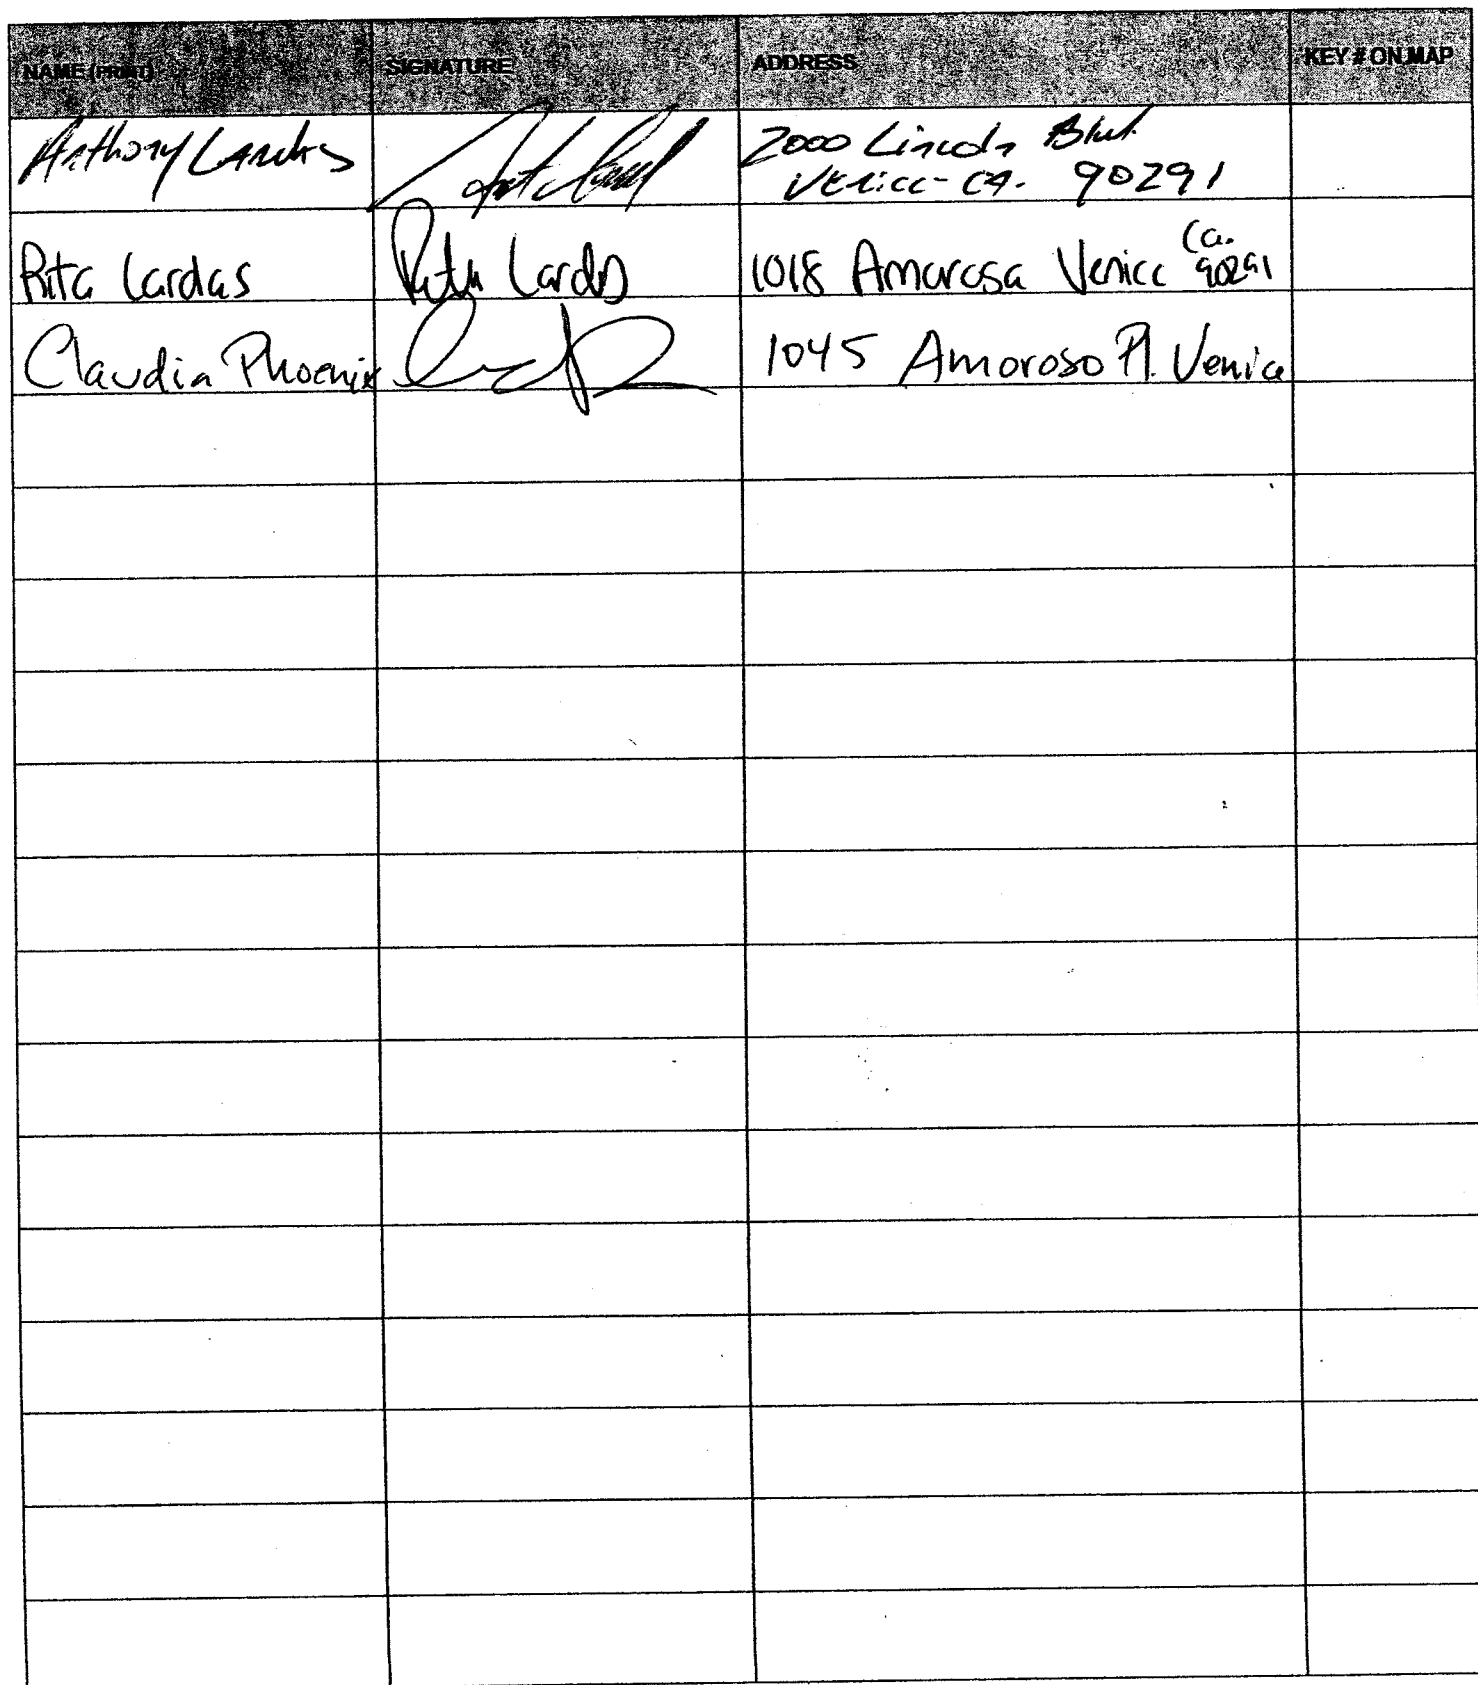 NAME (PRINT) SIGNATURE ADDRESS KEY # ON MAP
Anthony Lardas 2000 Lincoln Blvd.
Venice - CA. 90291
Rita Lardas Rita Lardas 1018 Amorosa Venice Ca.
90291
Claudia Phoenix 1045 Amoroso Pl. Venice